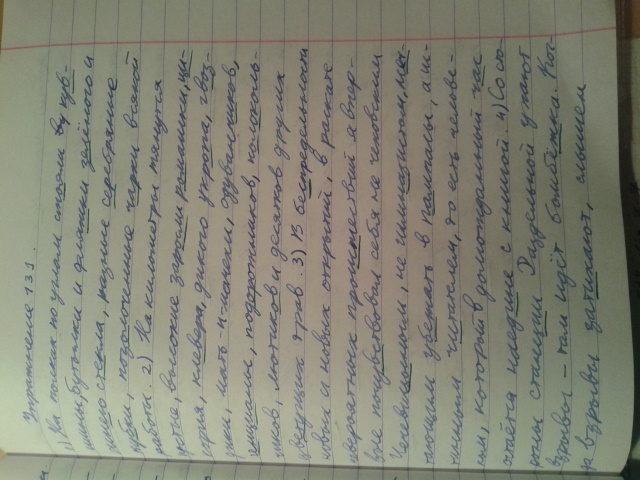 Упражнение 131.
1) На полках по углам стояли кув-
шины, бутылки и фляжки зелёного и
синего стекла, разные серебряные
кубки, позолоченные чарки всякой
работы. 2) На километры тянутся
густые, высокие заросли ромашки, ци-
кория, клевера, дикого укропа, гвоз-
дики, мать-и-мачехи, одуванчиков,
подорожников, колоколь-
чиков, лютиков и десятков других
цветущих трав. 3) В беспредельности
новых и новых открытий, в раскате
невероятных происшествий я впер-
вые почувствовал себя не человеком
не гимназистом, меч-
тающим убежать в пампасы, а ис-
тинным читателем, то есть челове-
ком, который в долгожданный час
остаётся наедине с книгой. 4) Со сто-
роны станции Раздельной ухают
взрывы – там идёт бомбёжка. Ког-
да взрывы затихают, слышим